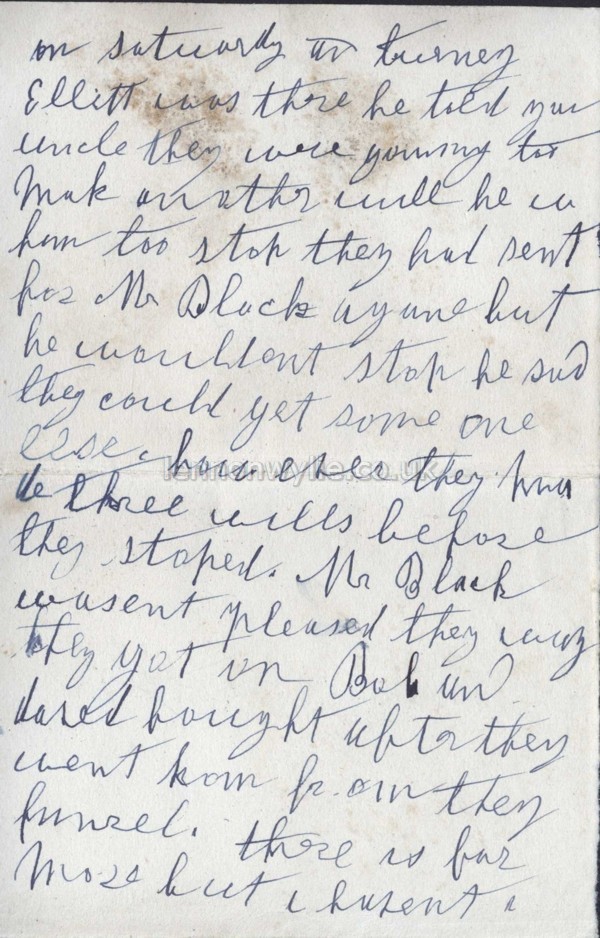 on saturday
Ellitt was there he told you
uncle they were
Mak another will he
him too stop they had sent
for Mr Black agane but
he wouldent stop he sad
they could get some one
else. how ever they
three wills before
they stoped. Mr Black
wasent pleased they way
they got on Bob and
fought after they
went hom from they
funrel. there is far
more but i hasent
lennonwylie.co.uk